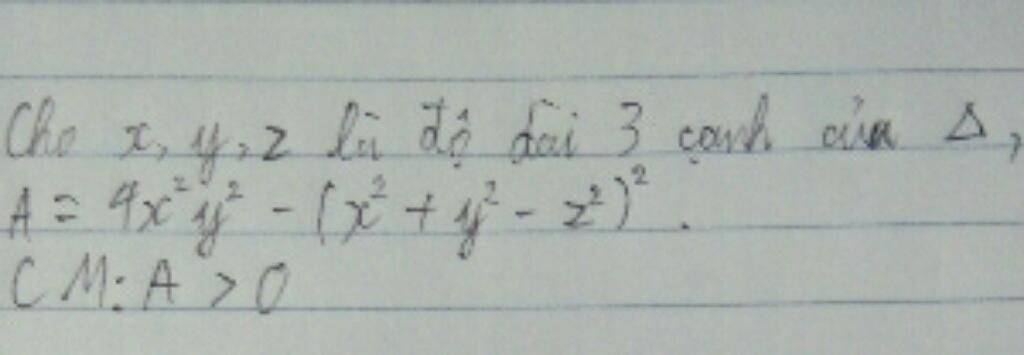 Cho x, y, z là độ dài 3 cạnh của Δ,
A = 4x²y² - (x² + y² - z²)².
CM: A > 0